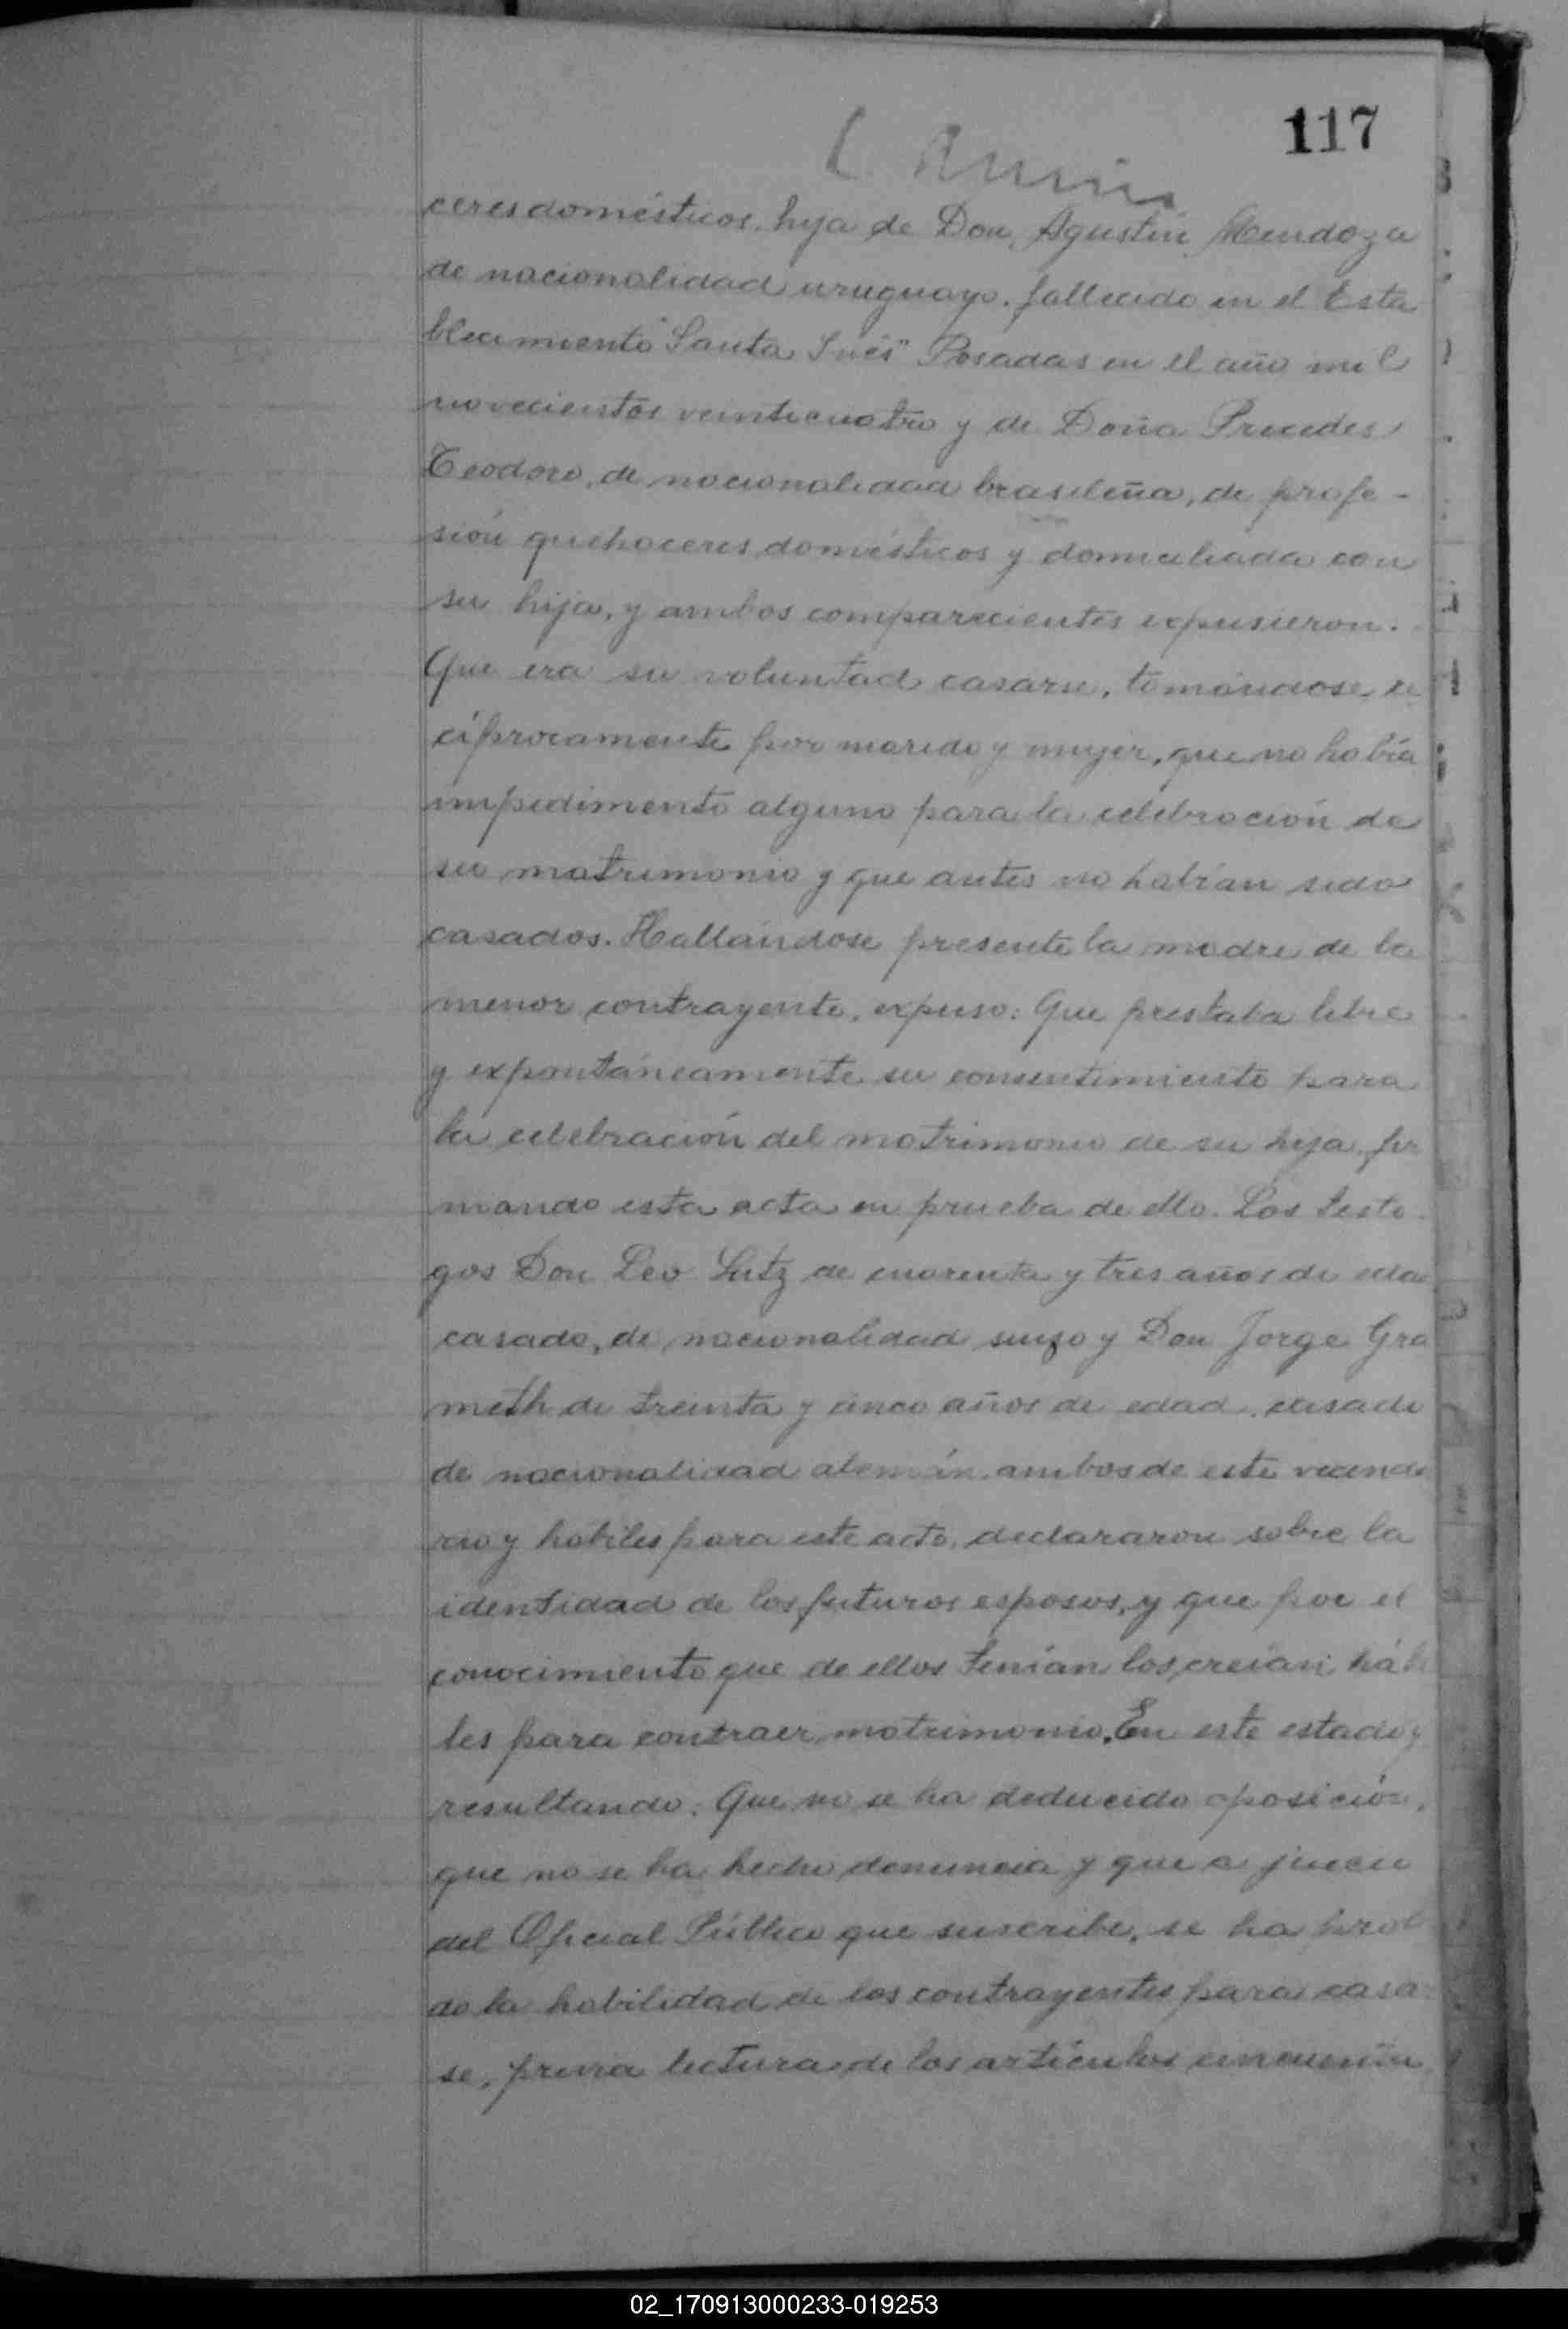 117
ceres domésticos, hija de Don Agustín Mendoza
de nacionalidad uruguayo, fallecido en el Esta
blecimiento "Santa Inés" Posadas en el año mil
novecientos veinticuatro y de Doña Precedes
Teodoro, de nacionalidad brasileña, de profe-
sión quehaceres domésticos y domiciliada con
su hija, y ambos comparecientes expusieron:
Que era su voluntad casarse, tomándose re
cíprocamente por marido y mujer, que no había
impedimento alguno para la celebración de
su matrimonio y que antes no habían sido
casados. Hallándose presente la madre de la
menor contrayente, expuso: Que prestaba libre
y expontáneamente su consentimiento para
la celebración del matrimonio de su hija, fir
mando esta acta en prueba de ello. Los testi-
gos Don Leo Lutz de cuarenta y tres años de eda
casado, de nacionalidad suizo y Don Jorge Gra
meth de treinta y cinco años de edad, casado
de nacionalidad alemán, ambos de este vecinda
rio y hábiles para este acto, declararon sobre la
identidad de los futuros esposos, y que por el
conocimiento que de ellos tenían los creían hábi
les para contraer matrimonio. En este estado y
resultando: Que no se ha deducido oposición,
que no se ha hecho denuncia y que a juicio
del Oficial Público que suscribe, se ha proba
do la habilidad de los contrayentes para casar
se, previa lectura de los artículos cincuenta
02_170913000233-019253